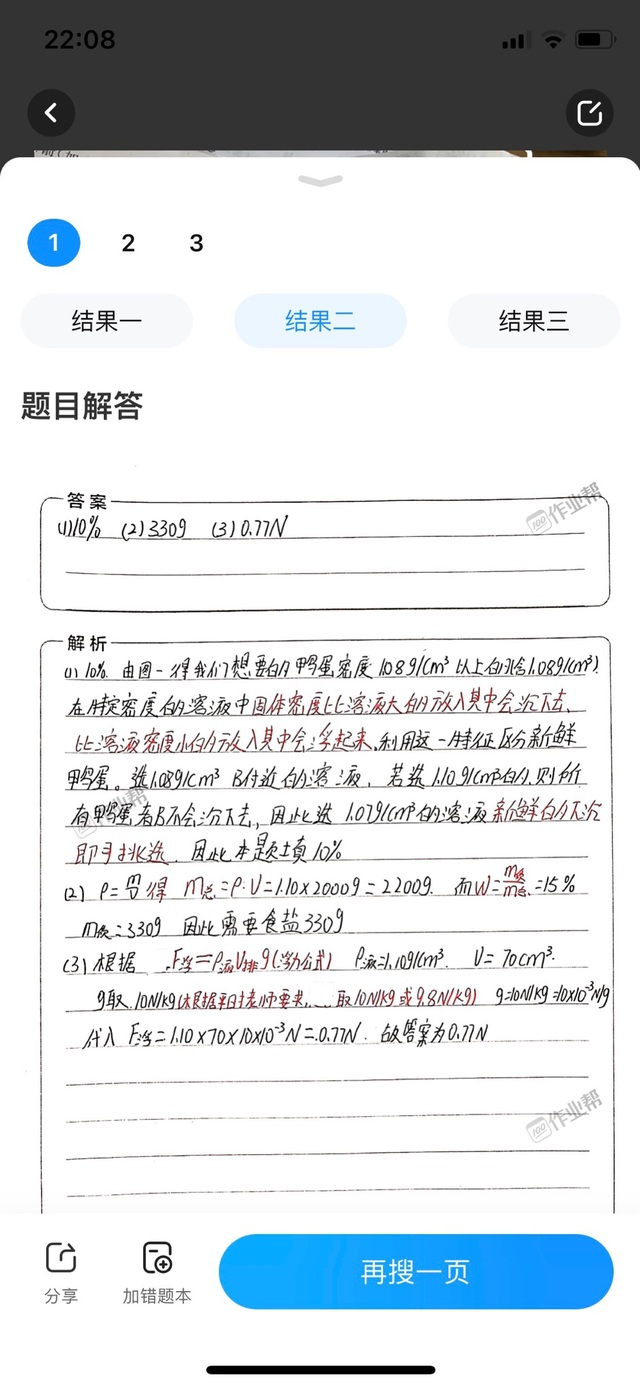 22:08
1 2 3
结果一 结果二 结果三
题目解答
答案
(1)10% (2)330g (3)0.77N
作业帮
解析
(1) 10%. 由图一得我们想要的鸭蛋密度1.08g/cm³以上的(含1.08g/cm³).
在特定密度的溶液中固体密度比溶液大的放入其中会沉下去,
比溶液密度小的放入其中会浮起来.利用这一特征区分新鲜
鸭蛋。选1.08g/cm³ B付近的溶液, 若选1.10g/cm³的,则所
有鸭蛋者B不会沉下去, 因此选 1.07g/cm³的溶液 新鲜的下沉
即可挑选. 因此本题填10%
作业帮
(2) ρ=m/V得 m总=ρ·V=1.10×2000g=2200g. 而W=m质/m总=15%
m质=330g 因此需要食盐330g
(3) 根据 F浮=ρ液V排g(浮力公式) ρ液=1.10g/cm³. V=70cm³.
g取10N/kg(根据平日老师要求……取10N/kg或9.8N/kg) g=10N/kg=10×10⁻³N/g
代入 F浮=1.10×70×10×10⁻³N=0.77N. 故答案为0.77N
作业帮
分享 加错题本 再搜一页